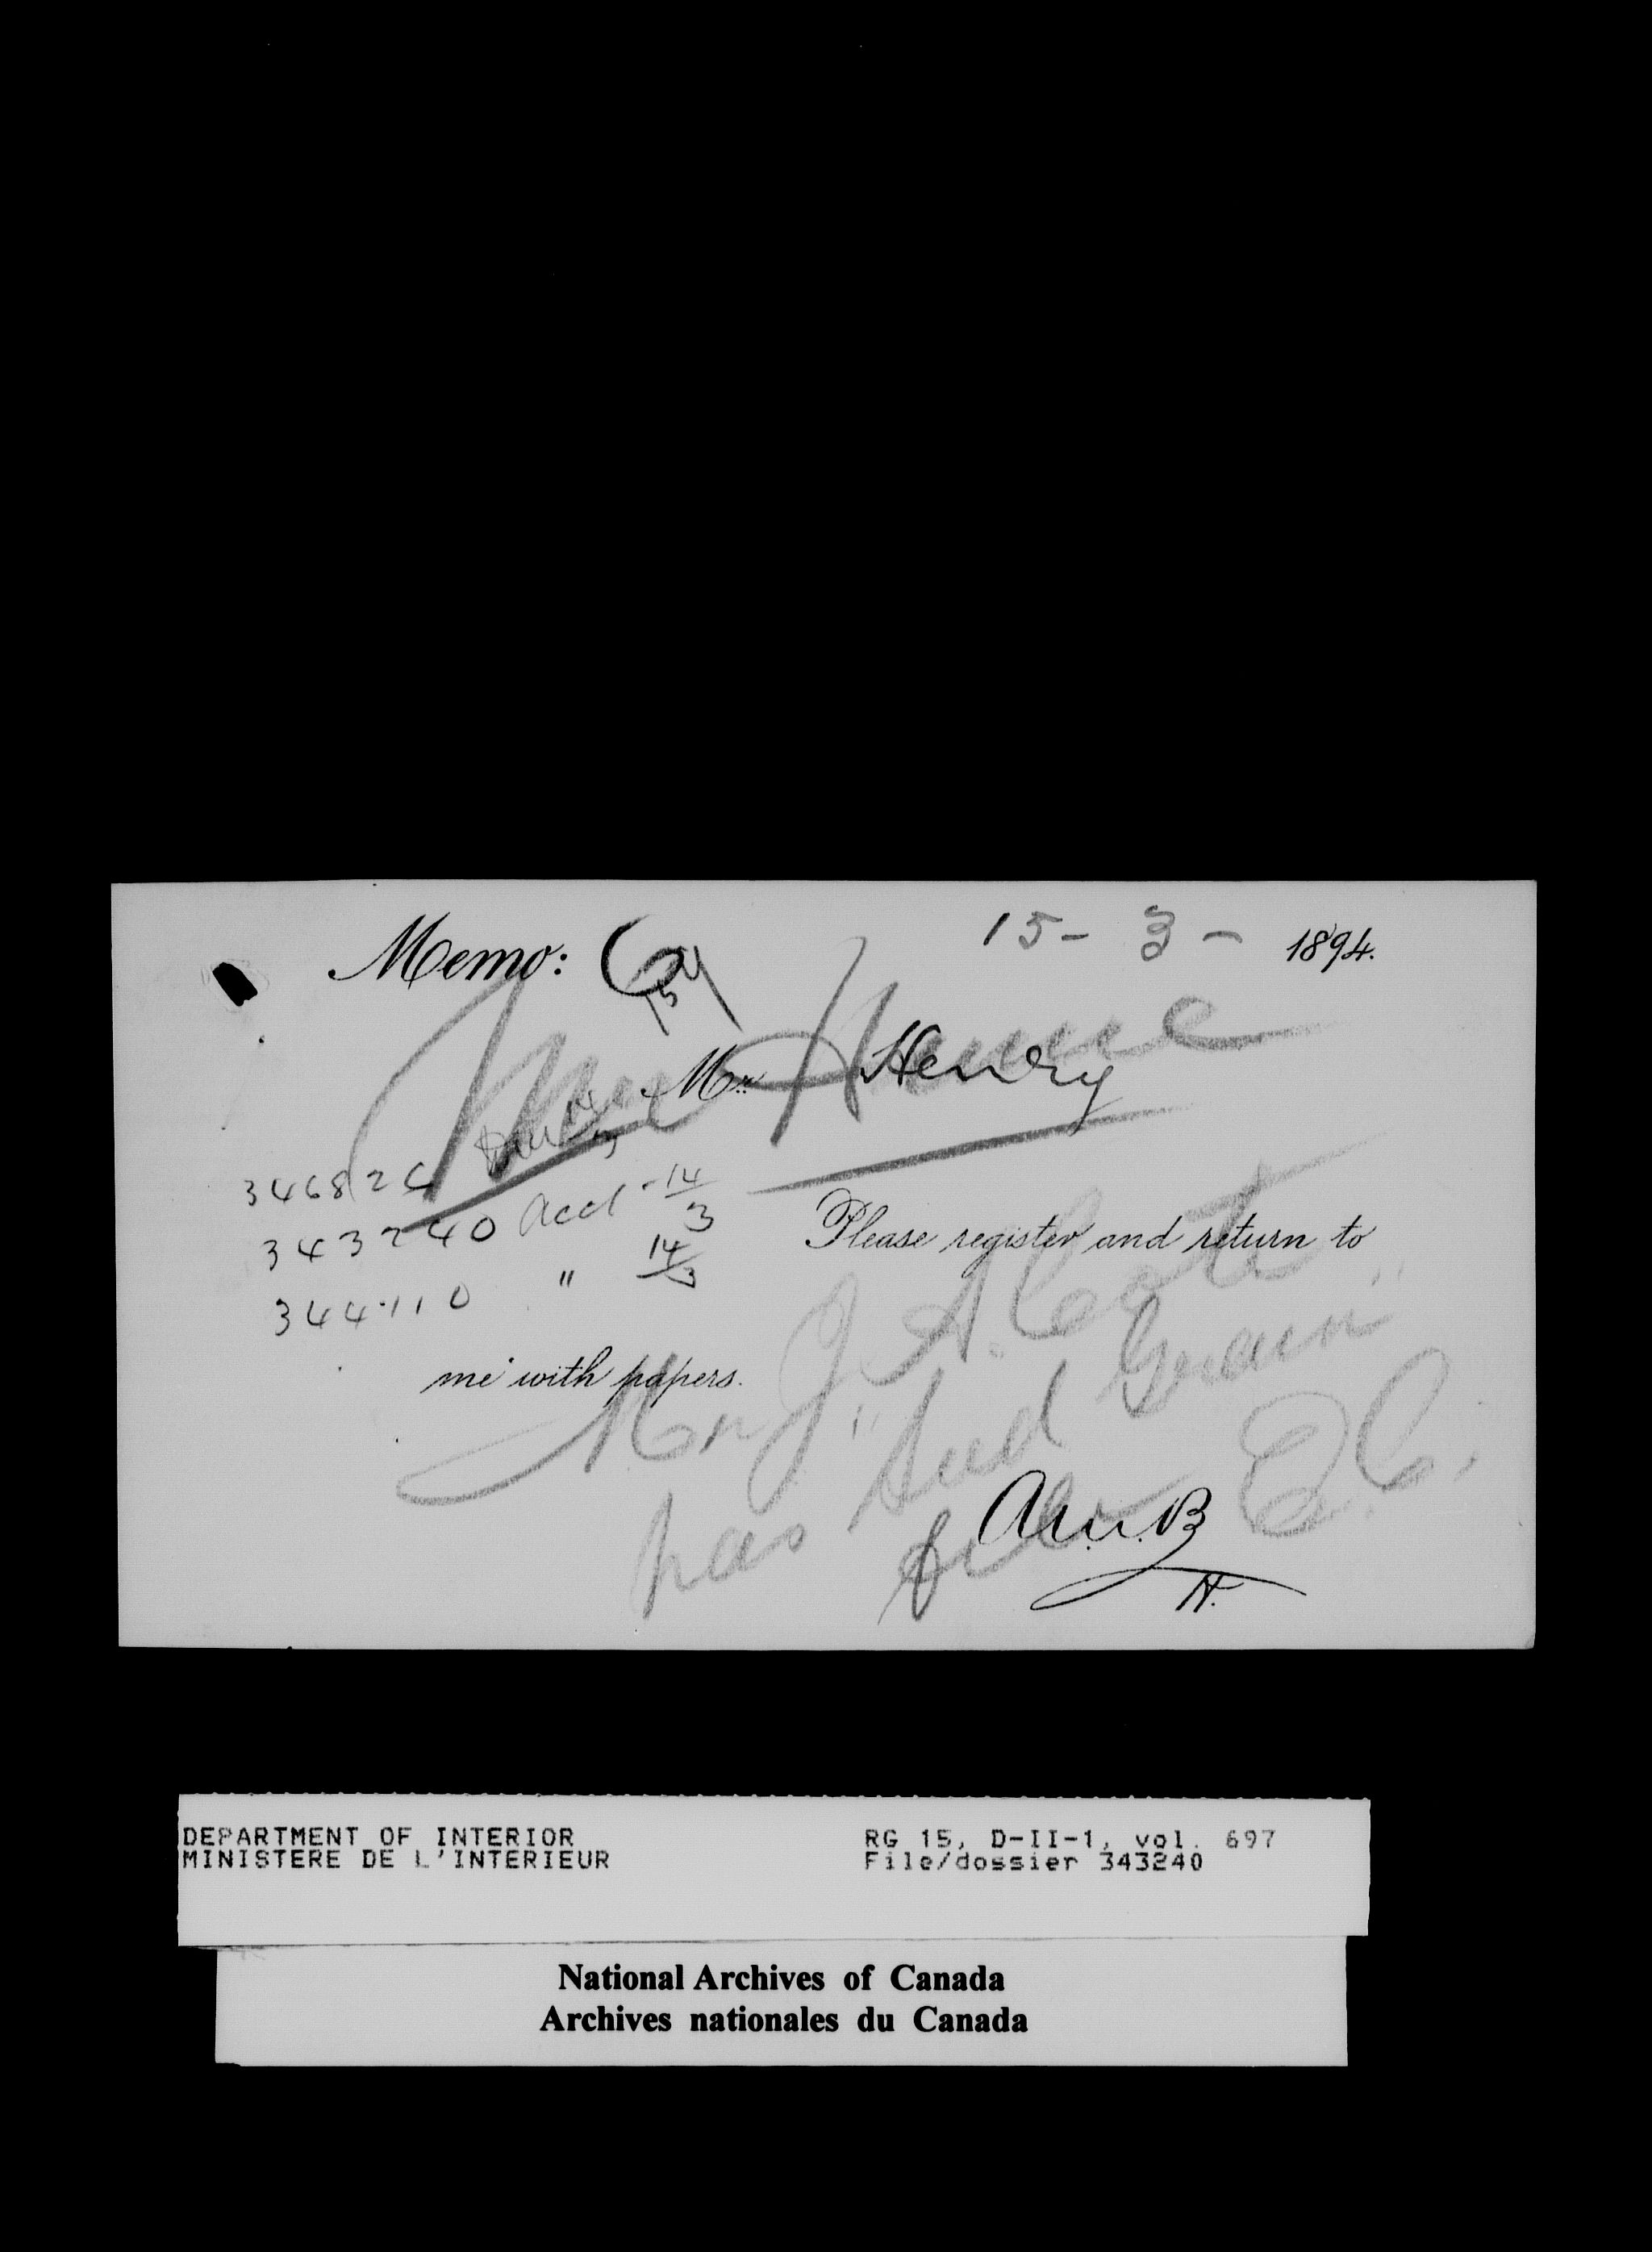 Memo:
15- 3 - 1894.
Mr Henry
346824
343240 Accd - 14/3
344110 " 14/3
Please register and return to
me with papers.
Mr J. A. Coté
has "Seed Grain"
file
A.M.B
H.
DEPARTMENT OF INTERIOR
MINISTERE DE L'INTERIEUR
RG 15, D-II-1, vol. 697
File/dossier 343240
National Archives of Canada
Archives nationales du Canada